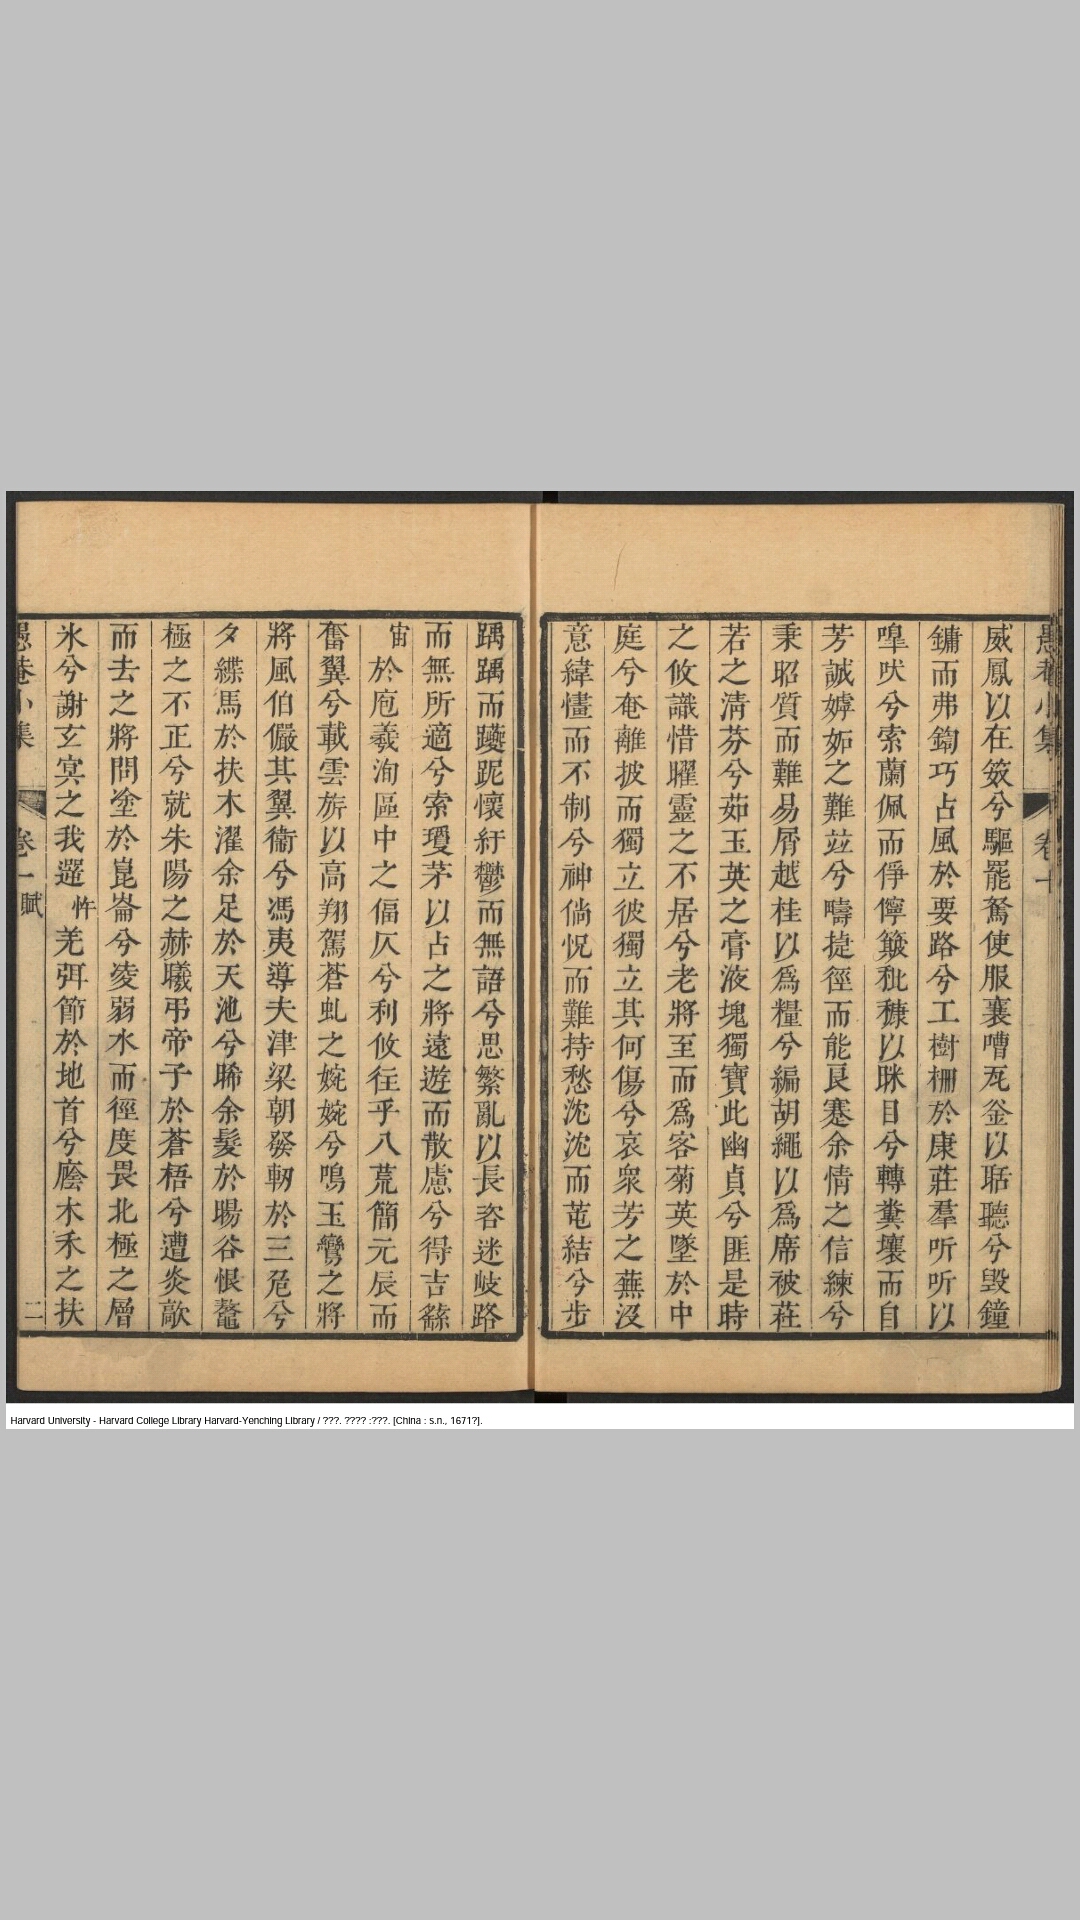 愚菴小集 卷一
威鳳以在笯兮驅罷駑使服襄嘈瓦釜以聒聽兮毀鐘
鏞而弗鎬巧占風於要路兮工樹柵於康莊羣听听以
嘷吠兮索蘭佩而俜儜簸秕穅以眯目兮轉糞壤而自
芳誠嫭妬之難竝兮疇捷徑而能良蹇余情之信練兮
秉昭質而難易屑越桂以爲糧兮編胡繩以爲席被葒
若之清芬兮茹玉英之膏液塊獨寶此幽貞兮匪是時
之攸識惜曜靈之不居兮老將至而爲客菊英墜於中
庭兮奄離披而獨立彼獨立其何傷兮哀衆芳之蕪沒
意緯懂而不制兮神倘怳而難持愁沈沈而苑結兮步
踽踽而躨跜懷紆鬱而無語兮思繁亂以長咨迷岐路
而無所適兮索瓊茅以占之將遠遊而散慮兮得吉繇
於庖羲洵區中之偪仄兮利攸往乎八荒簡元辰而
奮翼兮載雲旂以高翔駕蒼虬之婉婉兮鳴玉鸞之將
將風伯儼其翼衞兮馮夷導夫津梁朝發軔於三危兮
夕緤馬於扶木濯余足於天池兮晞余髮於暘谷恨鼇
極之不正兮就朱陽之赫曦弔帝子於蒼梧兮遭炎歊
而去之將問塗於崑崙兮凌弱水而徑度畏北極之層
氷兮謝玄冥之我遻忤羌弭節於地首兮廕木禾之扶
愚菴小集 卷一 賦 二
Harvard University - Harvard College Library Harvard-Yenching Library / ???. ???? :???. [China : s.n., 1671?].